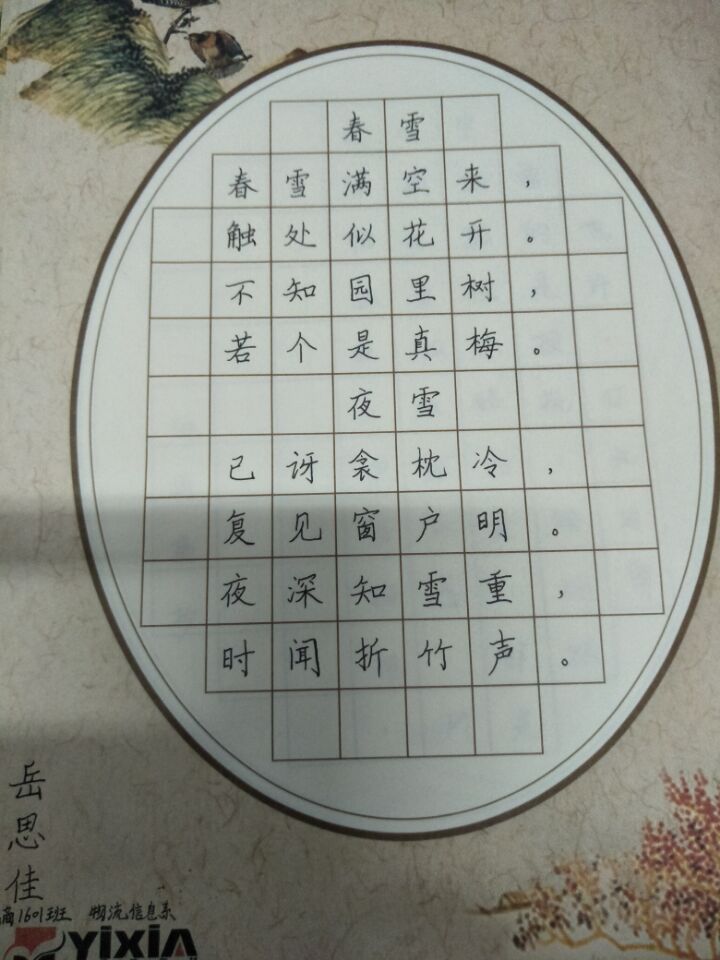 春雪
春雪满空来，
触处似花开。
不知园里树，
若个是真梅。
夜雪
已讶衾枕冷，
复见窗户明。
夜深知雪重，
时闻折竹声。
岳思佳
商1601班 物流信息系
YIXIA